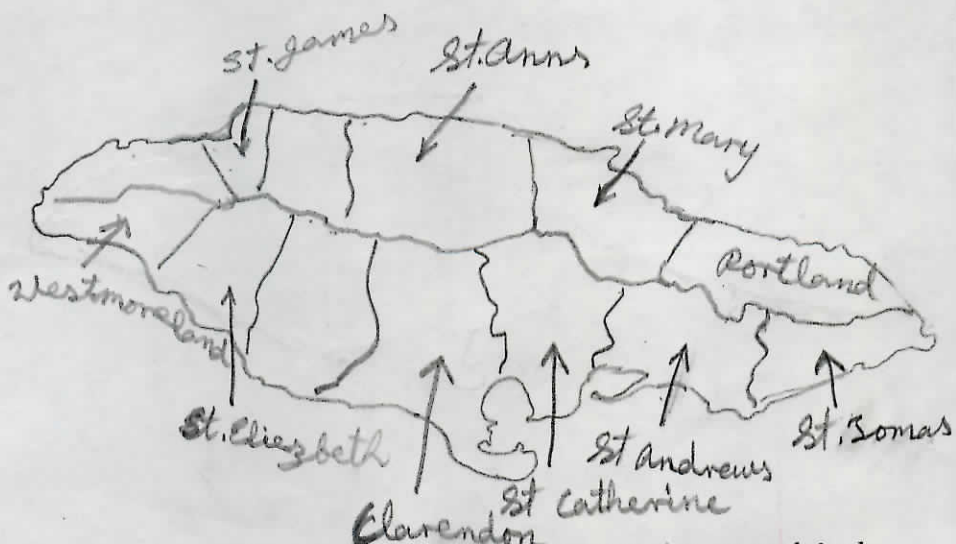 St. James
St. Anns
St. Mary
Portland
Westmoreland
St. Eliezbeth
Clarendon
St Catherine
St Andrews
St. Tomas